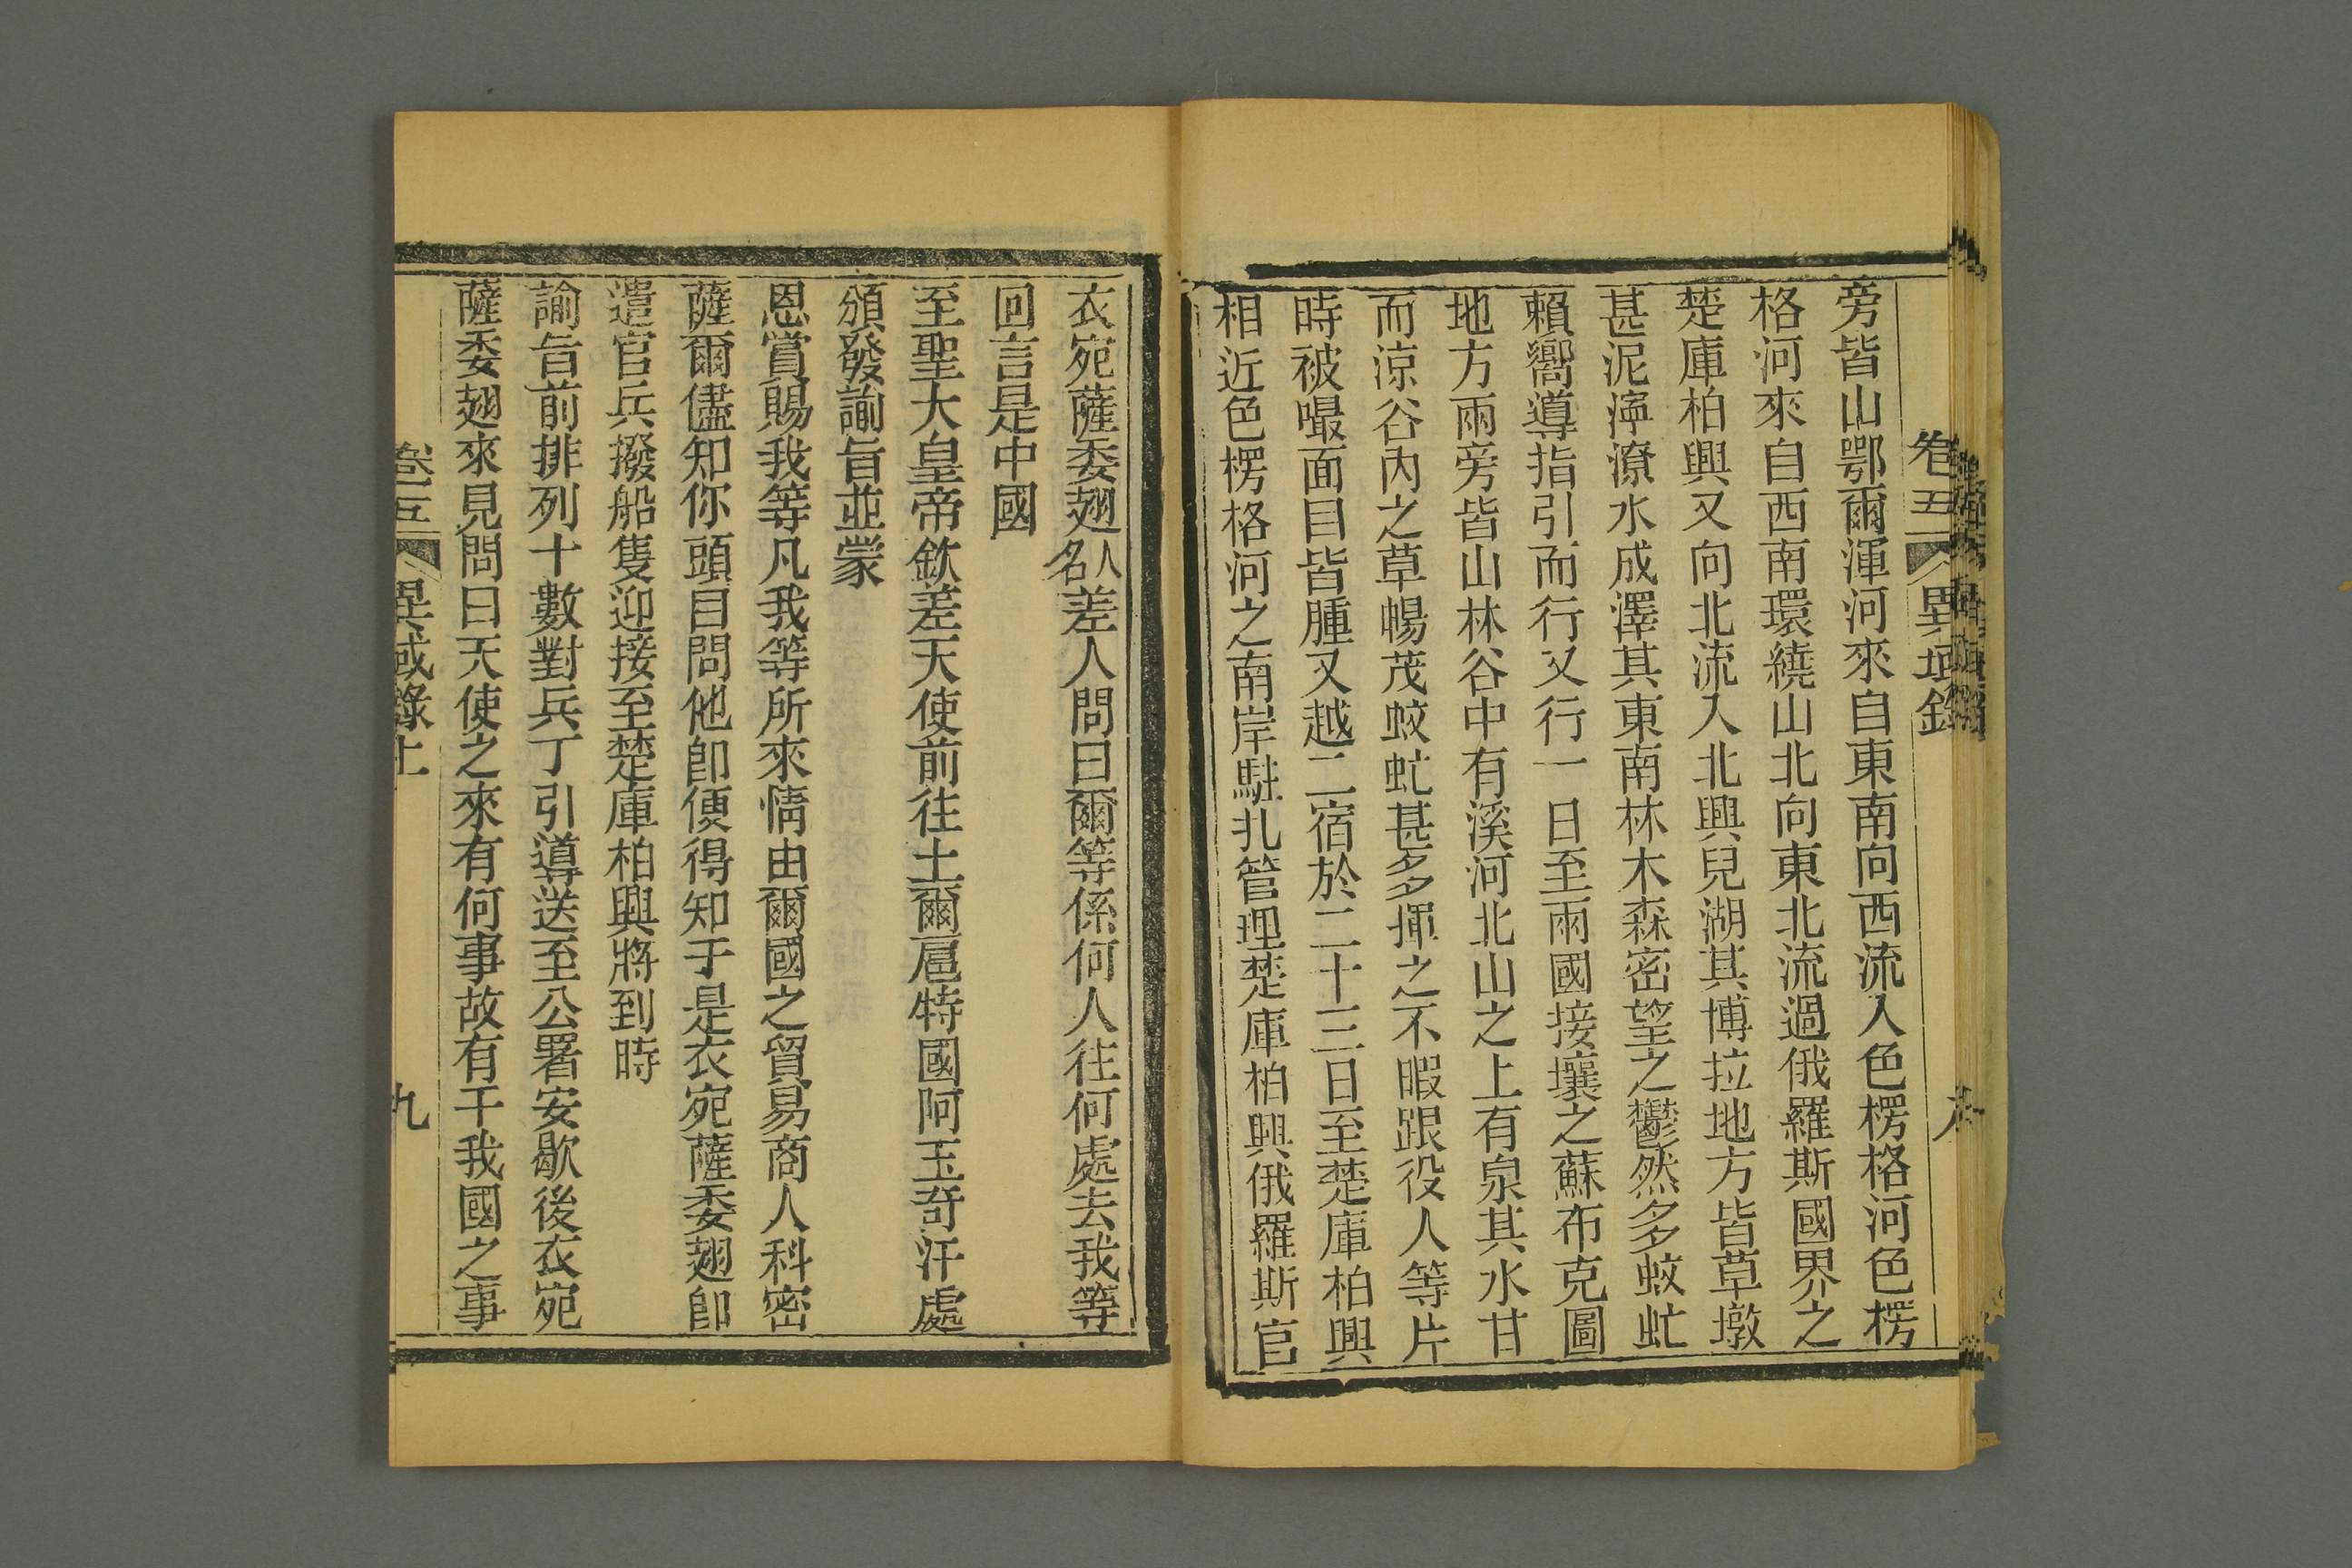 卷五 異域錄 八
旁皆山鄂爾渾河來自東南向西流入色楞格河色楞
格河來自西南環繞山北向東北流過俄羅斯國界之
楚庫柏興又向北流入北興兒湖其博拉地方皆草墩
甚泥濘潦水成澤其東南林木森密望之鬱然多蚊虻
賴嚮導指引而行又行一日至兩國接壤之蘇布克圖
地方兩旁皆山林谷中有溪河北山之上有泉其水甘
而涼谷內之草暢茂蚊虻甚多揮之不暇跟役人等片
時被嘬面目皆腫又越二宿於二十三日至楚庫柏興
相近色楞格河之南岸駐扎管理楚庫柏興俄羅斯官
衣宛薩委翅人名差人問曰爾等係何人往何處去我等
回言是中國
至聖大皇帝欽差天使前往土爾扈特國阿玉奇汗處
頒發諭旨並蒙
恩賞賜我等凡我等所來情由爾國之貿易商人科密
薩爾儘知你頭目問他卽便得知于是衣宛薩委翅卽
遣官兵撥船隻迎接至楚庫柏興將到時
諭旨前排列十數對兵丁引導送至公署安歇後衣宛
薩委翅來見問曰天使之來有何事故有干我國之事
卷五 異域錄上 九